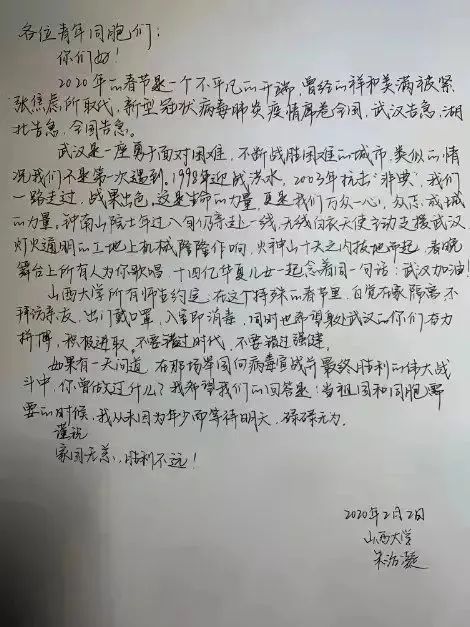 各位青年同胞们：
你们好！
2020年的春节是一个不平凡的开端，曾经的祥和美满被紧
张焦虑所取代，新型冠状病毒肺炎疫情席卷全国，武汉告急，湖
北告急，全国告急。
武汉是一座勇于面对困难，不断战胜困难的城市，类似的情
况我们不是第一次遇到。1998年迎战洪水，2003年抗击"非典"，我们
一路走过，战果出色，这是生命的力量，更是我们万众一心，众志成城
的力量，钟南山院士年过八旬仍奔赴一线，无线白衣天使主动支援武汉，
灯火通明的土地上机械隆隆作响，火神山十天之内拔地而起，春晚
舞台上所有人为你歌唱，十四亿华夏儿女一起念着同一句话：武汉加油！
山西大学所有师生约定，在这个特殊的春节里，自觉在家隔离不
拜访亲友，出门戴口罩，入室即消毒，同时也希望身处武汉的你们奋力
拼搏，积极进取，不要错过时代，不要错过强健。
如果有一天问道，在那场举国向病毒宣战并最终胜利的伟大战
斗中，你曾做过什么？我希望我们的回答是：当祖国和同胞需
要的时候，我从未因为年少而等待明天，碌碌无为。
谨祝
家国无恙，胜利不远！
2020年2月2日
山西大学
朱治凝